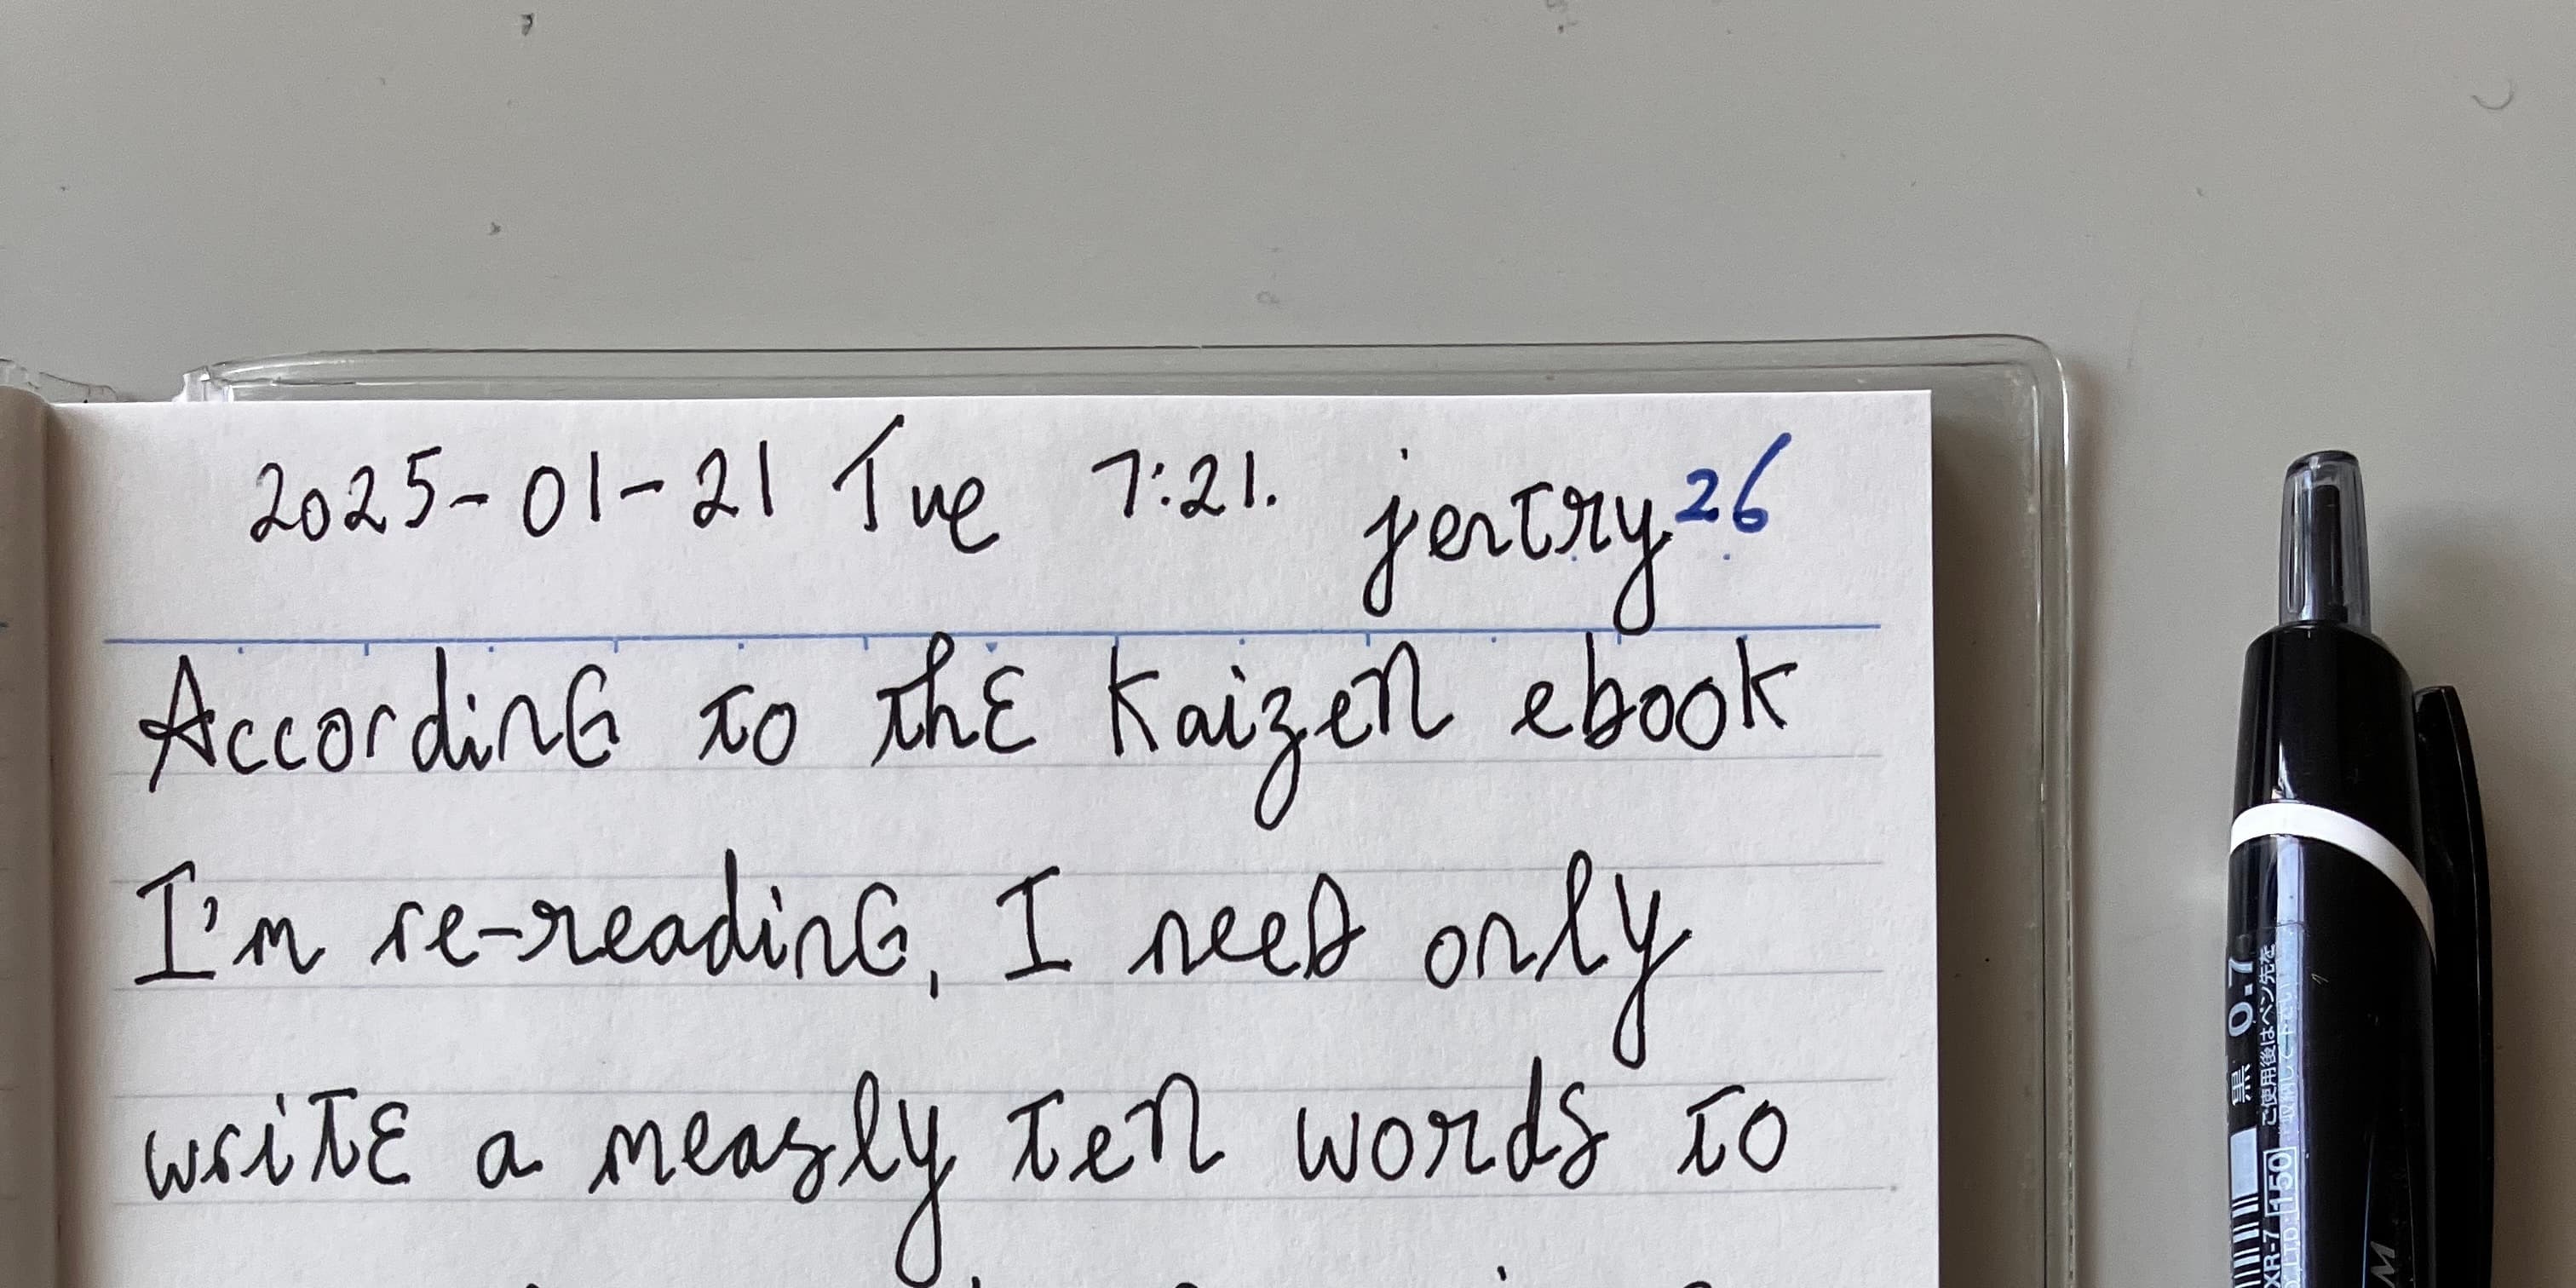 2025-01-21 Tue 7:21. jentry 26
According to the Kaizen ebook
I'm re-reading, I need only
write a measly ten words to
0.7
黒
ご使用後はペン先を
収納して下さい
XR-7
150